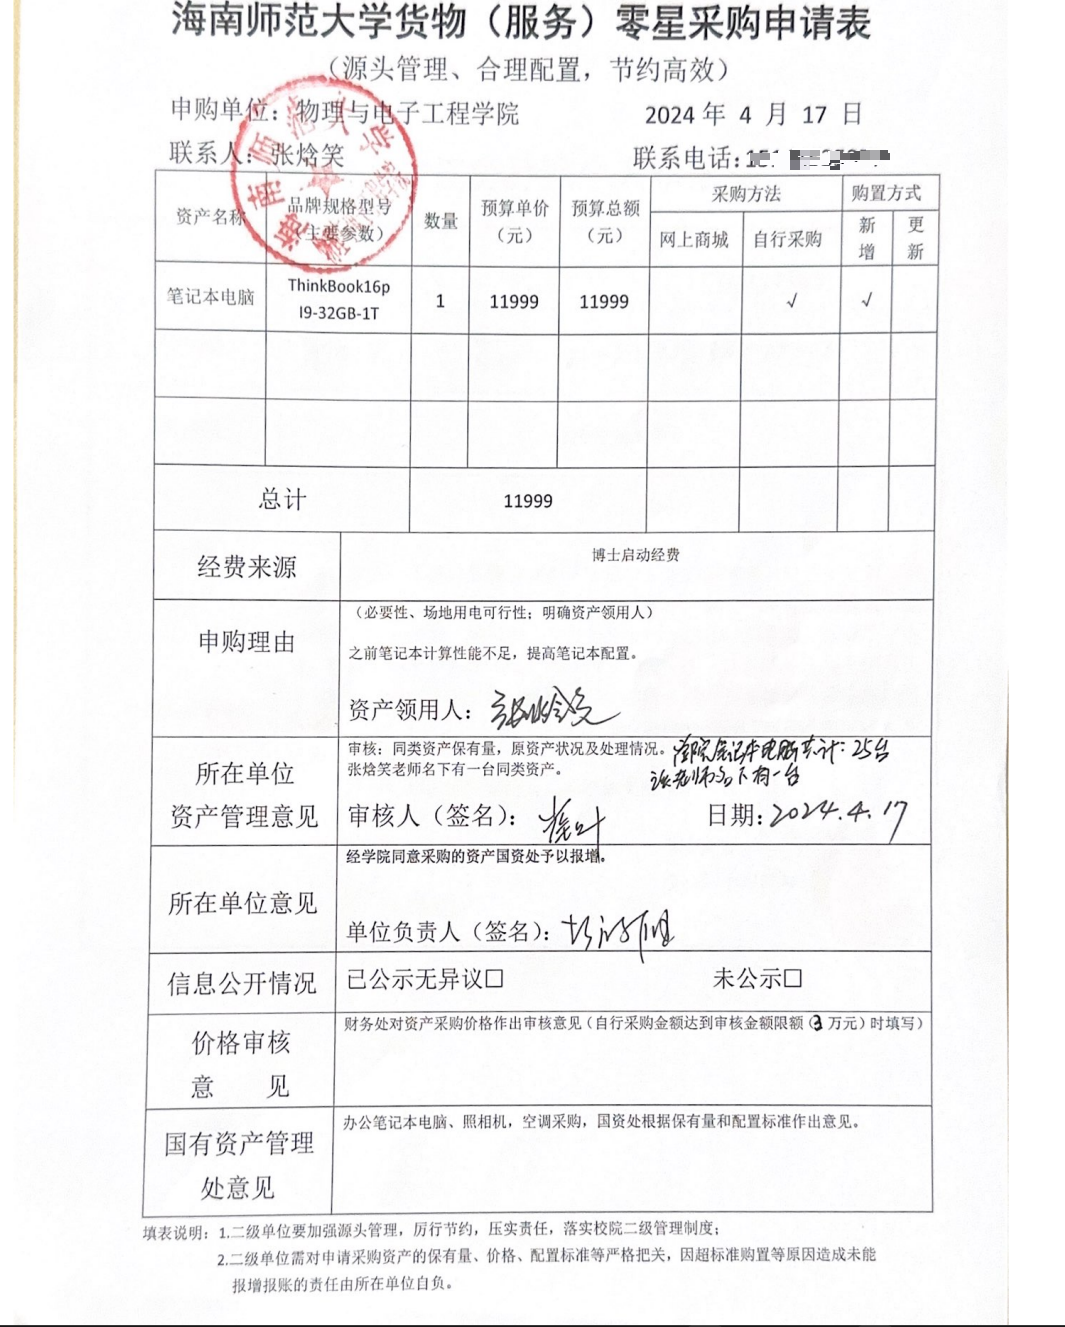 海南师范大学货物（服务）零星采购申请表
（源头管理、合理配置，节约高效）
申购单位：物理与电子工程学院 2024 年 4 月 17 日
联系人：张焓笑 联系电话：
资产名称 品牌规格型号（主要参数） 数量 预算单价（元） 预算总额（元） 采购方法 购置方式
网上商城 自行采购 新增 更新
笔记本电脑 ThinkBook16p I9-32GB-1T 1 11999 11999 √ √
总计 11999
经费来源 博士启动经费
申购理由
（必要性、场地用电可行性；明确资产领用人）
之前笔记本计算性能不足，提高笔记本配置。
资产领用人：张焓笑
所在单位资产管理意见
审核：同类资产保有量，原资产状况及处理情况。学院笔记本电脑共计：25台
张焓笑老师名下有一台同类资产。该老师名下有一台
审核人（签名）： 日期：2024.4.17
所在单位意见
经学院同意采购的资产国资处予以报增。
单位负责人（签名）：
信息公开情况 已公示无异议□ 未公示□
价格审核意见
财务处对资产采购价格作出审核意见（自行采购金额达到审核金额限额（3 万元）时填写）
国有资产管理处意见
办公笔记本电脑、照相机，空调采购，国资处根据保有量和配置标准作出意见。
填表说明：1.二级单位要加强源头管理，厉行节约，压实责任，落实校院二级管理制度；
2.二级单位需对申请采购资产的保有量、价格、配置标准等严格把关，因超标准购置等原因造成未能
报增报账的责任由所在单位自负。